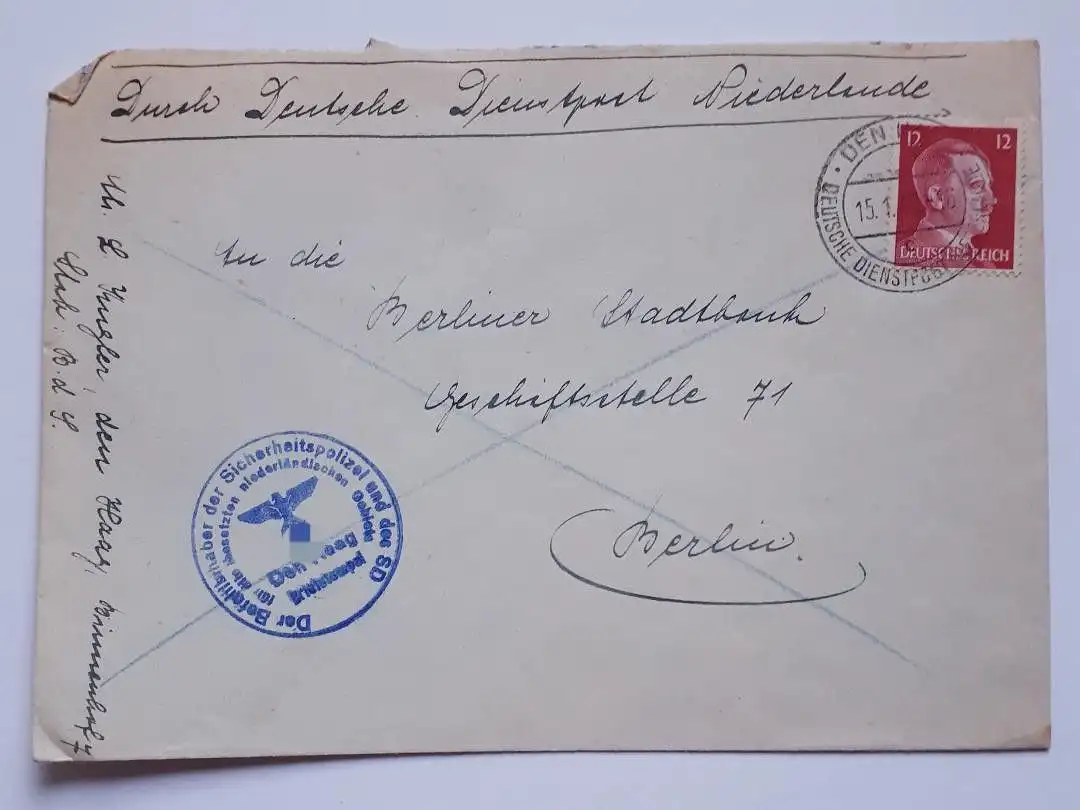 Durch Deutsche Dienstpost Niederlande
12 12
DEUTSCHES REICH
DEN
15.1.
DEUTSCHE DIENSTPOST
An die
Berliner Stadtbank
Geschäftsstelle 71
Berlin.
Der Befehlshaber der Sicherheitspolizei und des SD
für die besetzten niederländischen Gebiete
Den Haag
L Kugler, den Haag, Binnenhof 7
Stab. B. d. S.